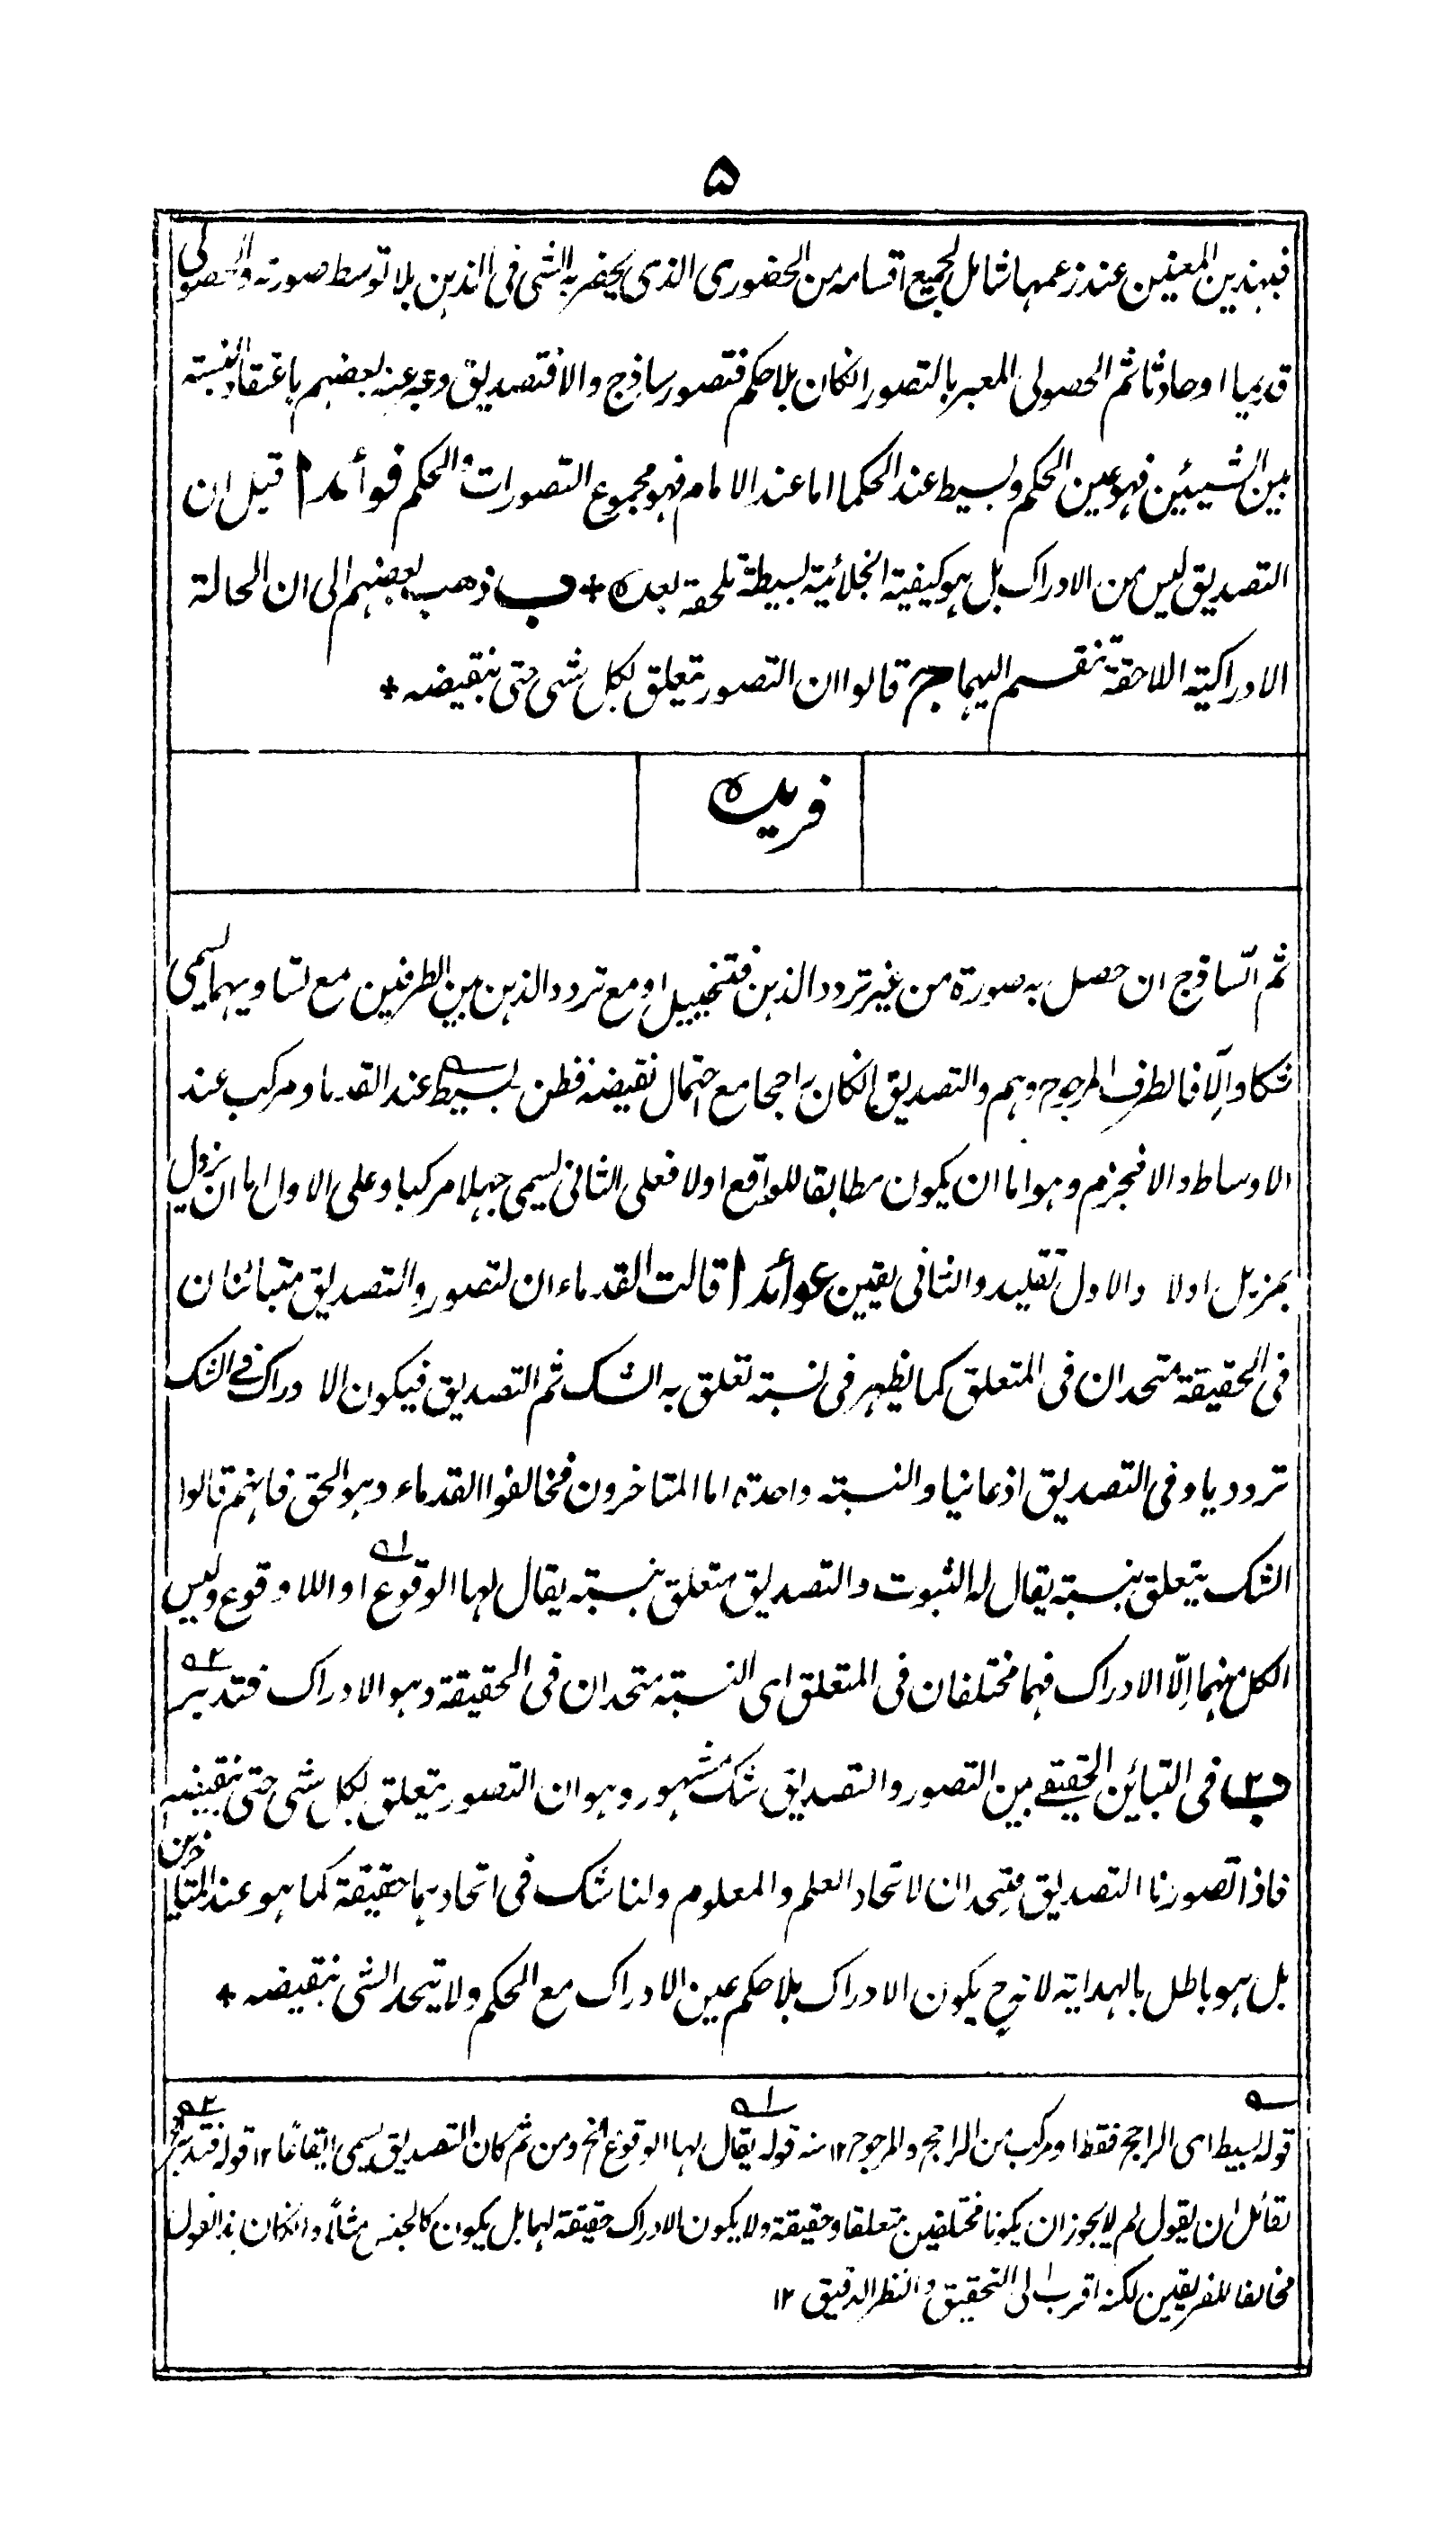 ۵
فبهذين المعنيين عند زعمها شامل لجميع اقسامه من الحضورى الذى يحضر به الشئ فى الذهن بلا توسط صورته والحصولى
قديما او حادثا ثم الحصولى المعبر بالتصور انكان بلا حكم فتصور ساذج والا فتصديق وعبر عنه بعضهم باعتقاد النسبته
بين الشيئين فهو عين الحكم وبسيط عند الحكما اما عند الامام فهو مجموع التصورات والحكم فوائد ا قيل ان
التصديق ليس من الادراك بل هو كيفية انجلائية بسيطة ملحقة بعده + ب ذهب بعضهم الى ان الحالة
الادراكية اللاحقة تنقسم اليهما ج قالوا ان التصور يتعلق بكل شى حتى بنقيضه +
فريده
ثم السّاذج ان حصل به صورة من غير تردد الذهن فتخييل او مع تردد الذهن بين الطرفين مع تساويهما يسمى
شكا والّا فالطرف المرجوح وهم والتصديق انكان راجحا مع احتمال نقيضه فظن بسيط عند القدما ومركب عند
الاوساط والا فجزم وهو اما ان يكون مطابقا للواقع اولا فعلى الثانى يسمى جهلا مركبا وعلى الاول اما ان يزول
بمزيل اولا والاول تقليد والثانى يقين عوائد ا قالت القدماء ان التصور والتصديق متبائنان
فى الحقيقة متحدان فى المتعلق كما يظهر فى نسبته تعلق به الشك ثم التصديق فيكون الادراك فى الشك
ترددياو فى التصديق اذعانيا والنسبته واحدة اما المتاخرون فخالفوا القدماء وهو الحق فانهم قالوا
الشك يتعلق بنسبته يقال له الثبوت والتصديق متعلق بنسبته يقال لها الوقوع ۱ او اللا وقوع وليس
الكل منهما الّا الادراك فهما مختلفان فى المتعلق اى النسبته متحدان فى الحقيقة وهو الادراك فتدبر ۲
ب فى التبائن الحقيقے بين التصور والتصديق شك مشهور وهو ان التصور يتعلق بكل شى حتى بنقيضه
فاذا تصورنا التصديق فيتحدان لاتحاد العلم والمعلوم ولنا شك فى اتحادهما حقيقة كما هو عند المتاخرين
بل هو باطل بالبداية لانه ح يكون الادراك بلا حكم عين الادراك مع الحكم ولا يتحد الشى بنقيضه +
قوله بسيط اى الراجح فقط او مركب من الراجح والمرجوح ۱۲ منه ۱ قوله يقال لها الوقوع الخ ومن ثم كان التصديق يسمى ايقاعًا ۱۲ ۲ قوله فتدبر الخ
لقائل ان يقول لم لا يجوز ان يكونا مختلفين متعلقا وحقيقة ولا يكون الادراك حقيقة لهما بل يكون كالجنس مثلًا وانكان هذا القول
مخالفا للفريقين لكنه اقرب الى التحقيق والنظر الدقيق ۱۲